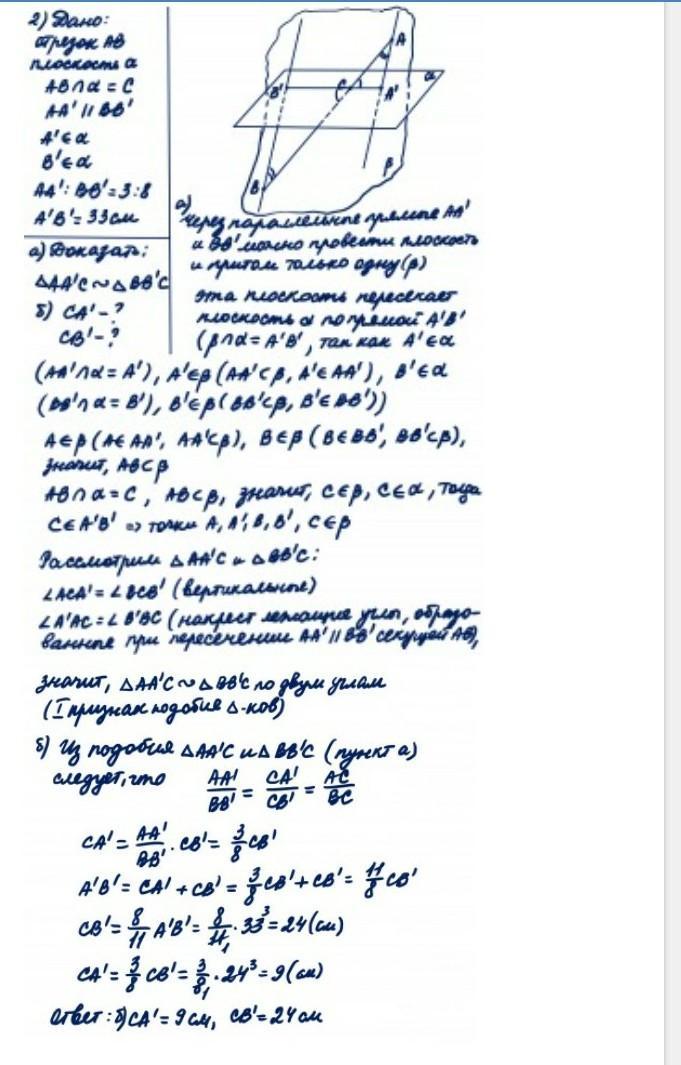 2) Дано:
отрезок AB
плоскость α
AB∩α = C
AA' ∥ BB'
A'∈α
B'∈α
AA' : BB' = 3:8
A'B' = 33 см
а) Доказать:
△AA'C ∾ △BB'C
б) CA' - ?
CB' - ?
A
α
B'
C
A'
B
β
а)
Через параллельные прямые AA'
и BB' можно провести плоскость
и притом только одну (β)
Эта плоскость пересекает
плоскость α по прямой A'B'
(β∩α = A'B', так как A'∈α
(AA'∩α = A'), A'∈β (AA'⊂β, A'∈AA'), B'∈α
(BB'∩α = B'), B'∈β (BB'⊂β, B'∈BB'))
A∈β (A∈AA', AA'⊂β), B∈β (B∈BB', BB'⊂β),
значит, AB⊂β
AB∩α = C, AB⊂β, значит, C∈β, C∈α, тогда
C∈A'B' ⇒ точки A, A', B, B', C∈β
Рассмотрим △AA'C и △BB'C:
∠ACA' = ∠BCB' (вертикальные)
∠A'AC = ∠B'BC (накрест лежащие углы, образо-
ванные при пересечении AA' ∥ BB' секущей AB),
значит, △AA'C ∾ △BB'C по двум углам
(I признак подобия △-ков)
б) Из подобия △AA'C и △BB'C (пункт а)
следует, что AA'/BB' = CA'/CB' = AC/BC
CA' = AA'/BB' · CB' = 3/8 CB'
A'B' = CA' + CB' = 3/8 CB' + CB' = 11/8 CB'
CB' = 8/11 A'B' = 8/11₁ · 33³ = 24 (см)
CA' = 3/8 CB' = 3/8₁ · 24³ = 9 (см)
Ответ: б) CA' = 9 см, CB' = 24 см